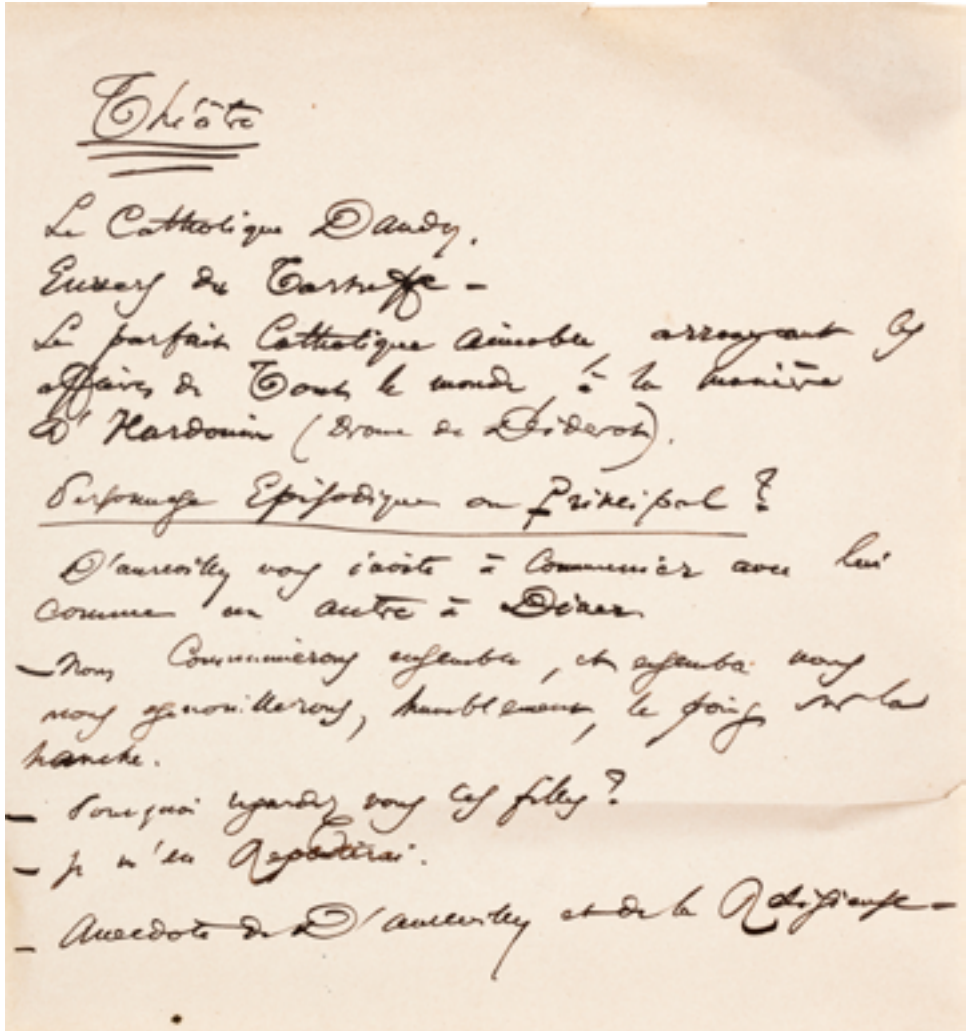 Théâtre
Le Catholique Dandy.
Envers du Tartuffe –
Le parfait Catholique aimable arrangeant les
affaires de Tout le monde à la manière
d'Hardouin (Drame de Diderot).
Personnage Episodique ou Principal ?
D'aurevilly vous invite à Communier avec lui
comme un autre à Diner
– Nous Communierons ensemble, et ensemble nous
nous agenouillerons, humblement, le poing sur la
hanche.
– Pourquoi regardez vous ces filles ?
– Je m'en Repentirai.
– Anecdote de D'aurevilly et de la Religieuse –